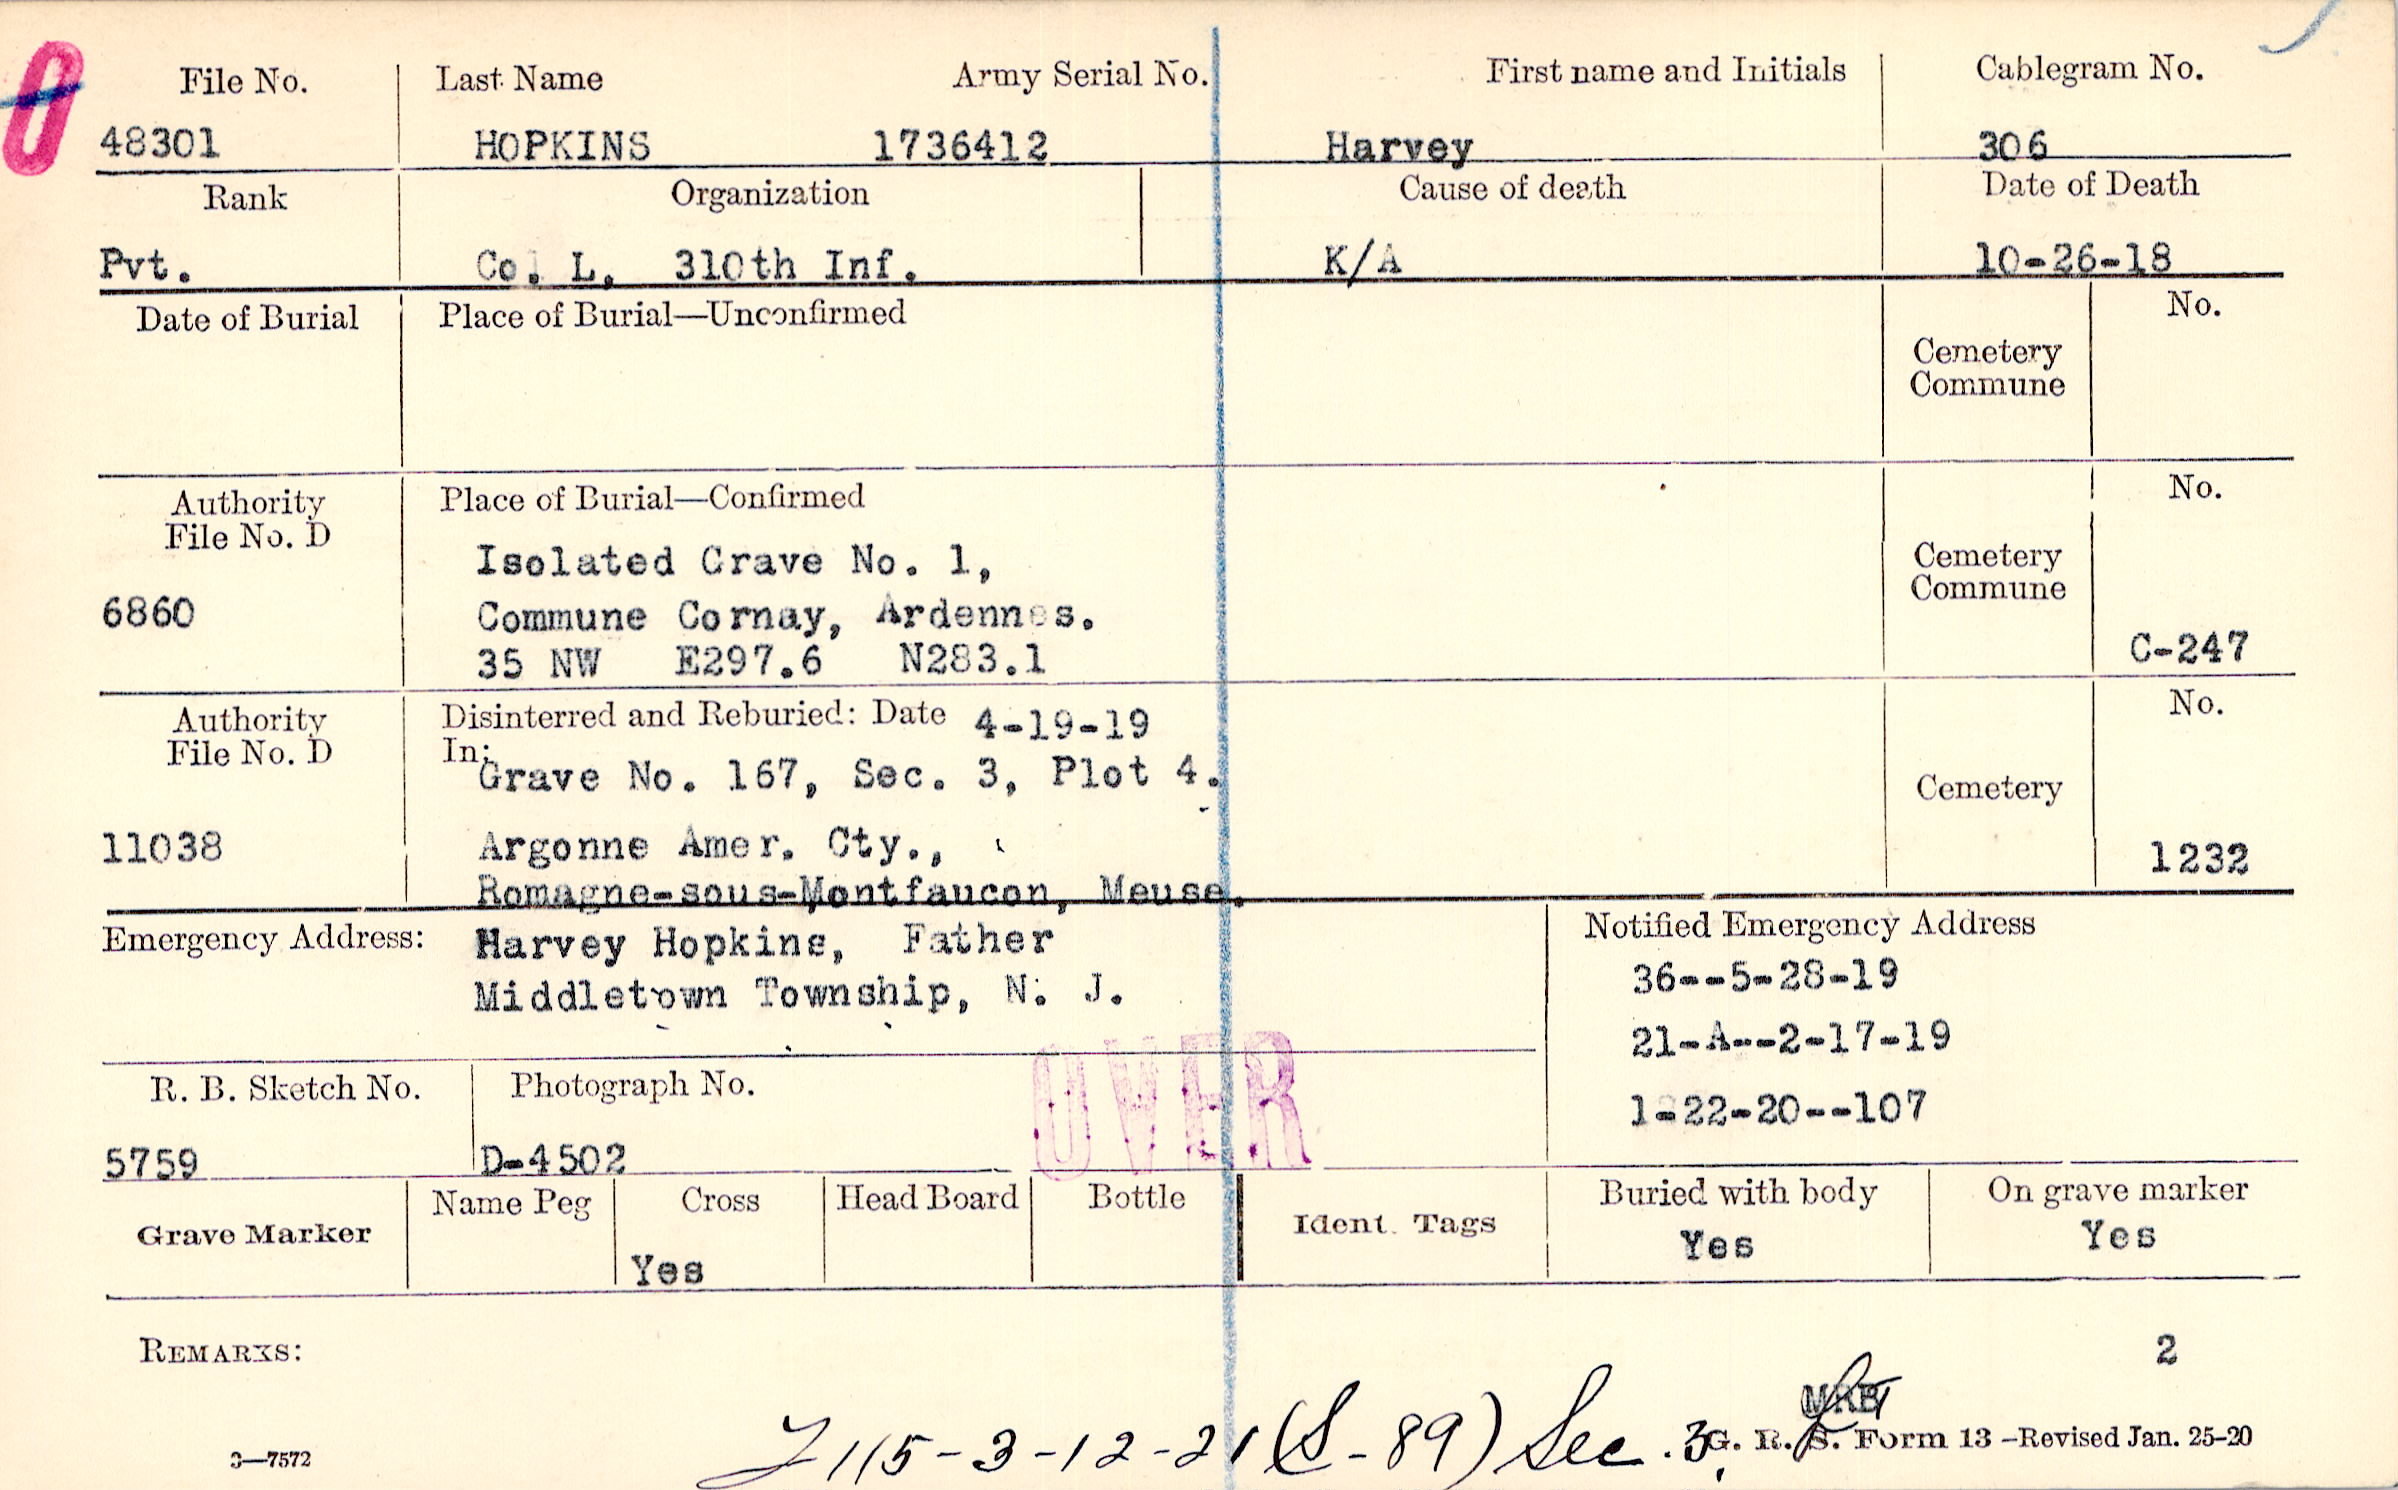 0
File No. Last Name Army Serial No. First name and Initials Cablegram No.
48301 HOPKINS 1736412 Harvey 306
Rank Organization Cause of death Date of Death
Pvt. Co. L, 310th Inf. K/A 10-26-18
Date of Burial Place of Burial—Unconfirmed No.
Cemetery
Commune
Authority Place of Burial—Confirmed No.
File No. D
Isolated Grave No. 1,
Cemetery
Commune
6860 Commune Cornay, Ardennes.
35 NW E297.6 N283.1 C-247
Authority Disinterred and Reburied: Date 4-19-19 No.
File No. D In:
Grave No. 167, Sec. 3, Plot 4.
Cemetery
11038 Argonne Amer. Cty., 1232
Romagne-sous-Montfaucon, Meuse.
Emergency Address: Harvey Hopkins, Father
Middletown Township, N. J.
Notified Emergency Address
36--5-28-19
21-A--2-17-19
1-22-20--107
OVER
R. B. Sketch No. Photograph No.
5759 D-4502
Grave Marker Name Peg Cross Head Board Bottle Ident. Tags Buried with body On grave marker
Yes Yes Yes
REMARKS:
2
MRB
115-3-12-21 (S-89) Sec. 3,
3—7572 G. R. S. Form 13—Revised Jan. 25-20